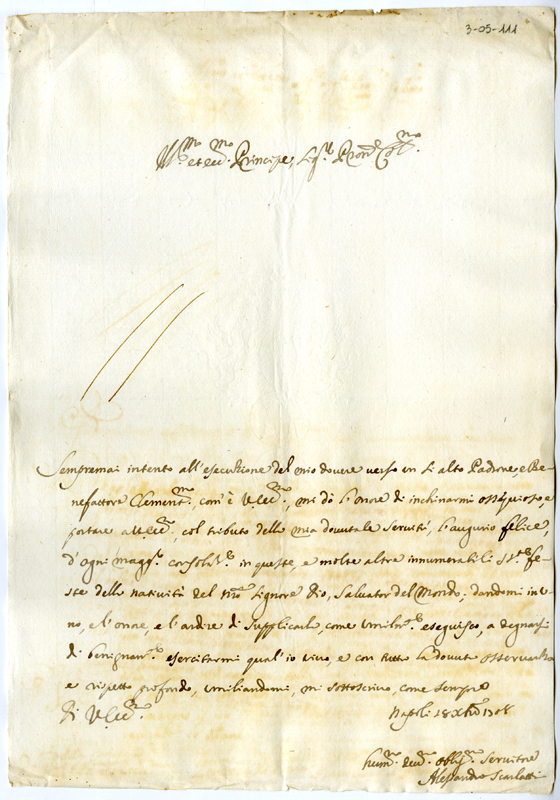 3-05-111
Ill.mo et ecc.mo Principe, Sig.re Pron.e Col.mo
Sempremai intento all'esecuzione del mio dovere verso un sì alto Padrone, e Be-
nefattore Clement.mo com'è V.Ecc.za, mi dò l'onore di inchinarmi ossequioso, e
portare a V.Ecc.za, col tributo della mia dovutale servitù, l'augurio felice,
d'ogni magg.r consolat.ne in queste, e molte altre innumerabili SS.te fe-
ste della natività del nr̃o Signore Dio, Salvator del Mondo; dandomi in u-
no, e l'onore, e l'ardire di supplicarla, come umilm.te eseguisco, a degnarsi
di benignam.te esercitarmi qual'io vivo, e con tutta la dovuta osservanza
e rispetto profondo, umiliandomi, mi sottoscrivo, come sempre
Di V.Ecc.za
Napoli 18 Xbre 1708
hum.mo dev.mo obblig.mo Servitore
Alessandro Scarlatti